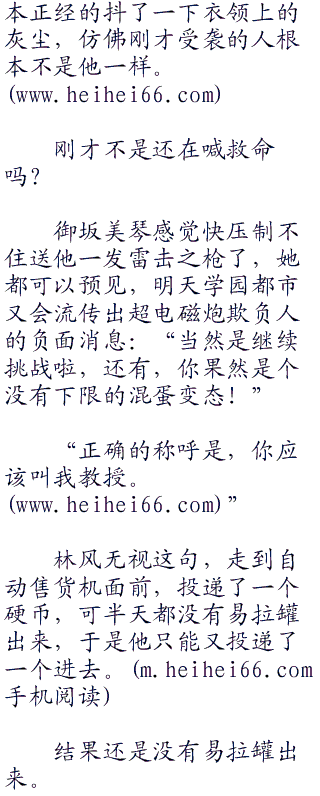 本正经的抖了一下衣领上的
灰尘，仿佛刚才受袭的人根
本不是他一样。
(www.heihei66.com)
刚才不是还在喊救命
吗？
御坂美琴感觉快压制不
住送他一发雷击之枪了，她
都可以预见，明天学园都市
又会流传出超电磁炮欺负人
的负面消息：“当然是继续
挑战啦，还有，你果然是个
没有下限的混蛋变态！”
“正确的称呼是，你应
该叫我教授。
(www.heihei66.com)”
林风无视这句，走到自
动售货机面前，投递了一个
硬币，可半天都没有易拉罐
出来，于是他只能又投递了
一个进去。(m.heihei66.com
手机阅读)
结果还是没有易拉罐出
来。